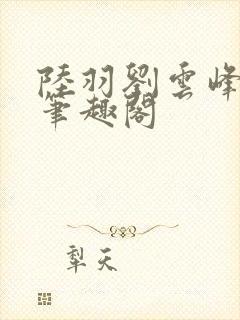 陸羽劉雲峰
筆趣閣
犁天